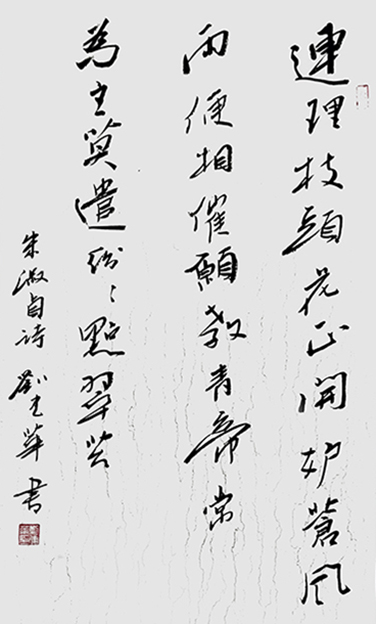 連理枝頭花正開妒蒼風
雨便相催願教青帝常
為主莫遣紛〻點翠苔
朱淑貞诗 劉華書